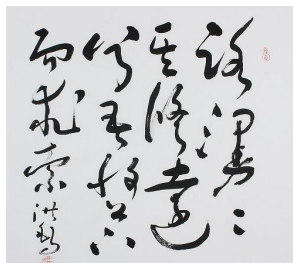 路漫漫
其修远
兮吾将上下
而求索 洪